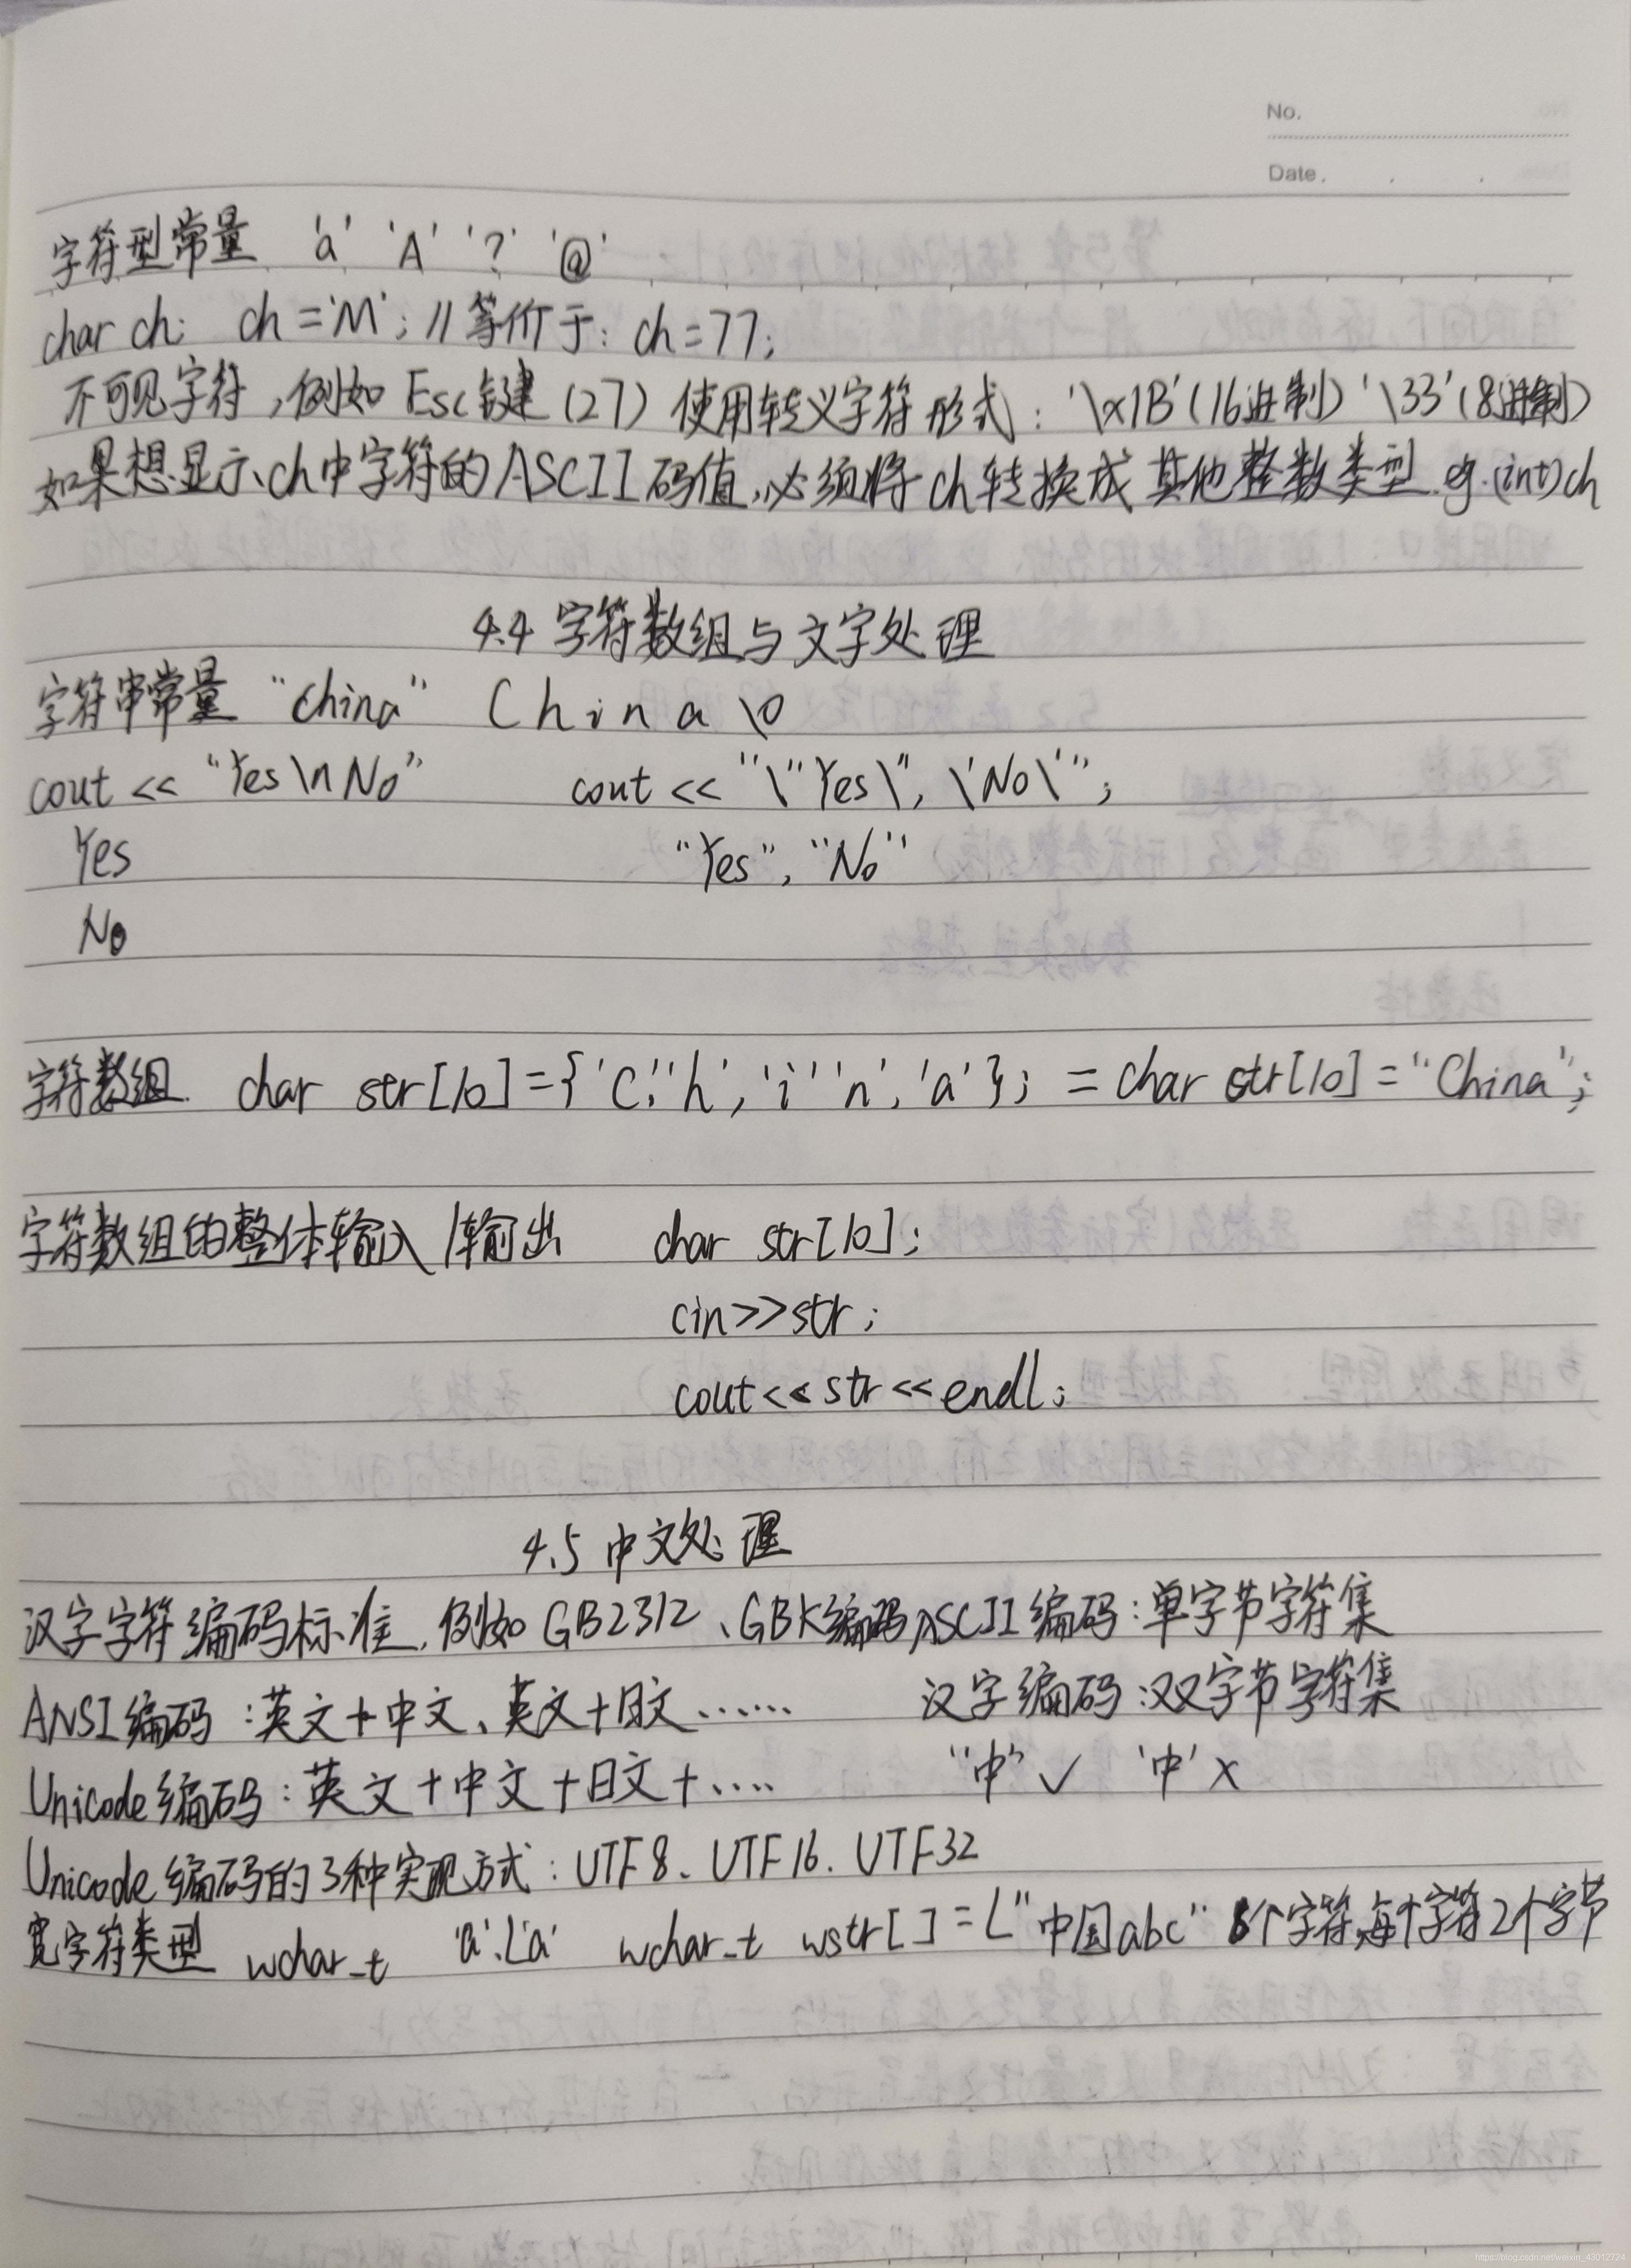 No.
Date.
字符型常量 'a' 'A' '?' '@'
char ch; ch='M'; //等价于: ch=77;
不可见字符,例如Esc键(27)使用转义字符形式:'\x1B'(16进制)'\33'(8进制)
如果想显示ch中字符的ASCII码值,必须将ch转换成其他整数类型 eg.(int)ch
4.4 字符数组与文字处理
字符串常量 "China" C h i n a \0
cout << "Yes\nNo" cout << "\"Yes\", \'No\'";
Yes "Yes", "No"
No
字符数组 char str[10]={'C','h','i' 'n','a'}; = char str[10]="China";
字符数组的整体输入/输出 char str[10];
cin>>str;
cout<<str<<endl;
4.5 中文处理
汉字字符编码标准,例如GB2312、GBK编码 ASCII编码:单字节字符集
ANSI编码:英文+中文、英文+日文...... 汉字编码:双字节字符集
Unicode编码:英文+中文+日文+.... "中"✓ '中'×
Unicode编码的3种实现方式:UTF8、UTF16、UTF32
宽字符类型 wchar_t 'a'、L'a' wchar_t wstr[]=L"中国abc" 6个字符,每个字符2个字节
https://blog.csdn.net/weixin_43012724